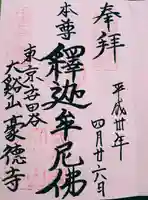 奉拝
平成卅年
四月廿六日
本尊
釋迦牟尼佛
東京世田谷
大谿山豪德寺